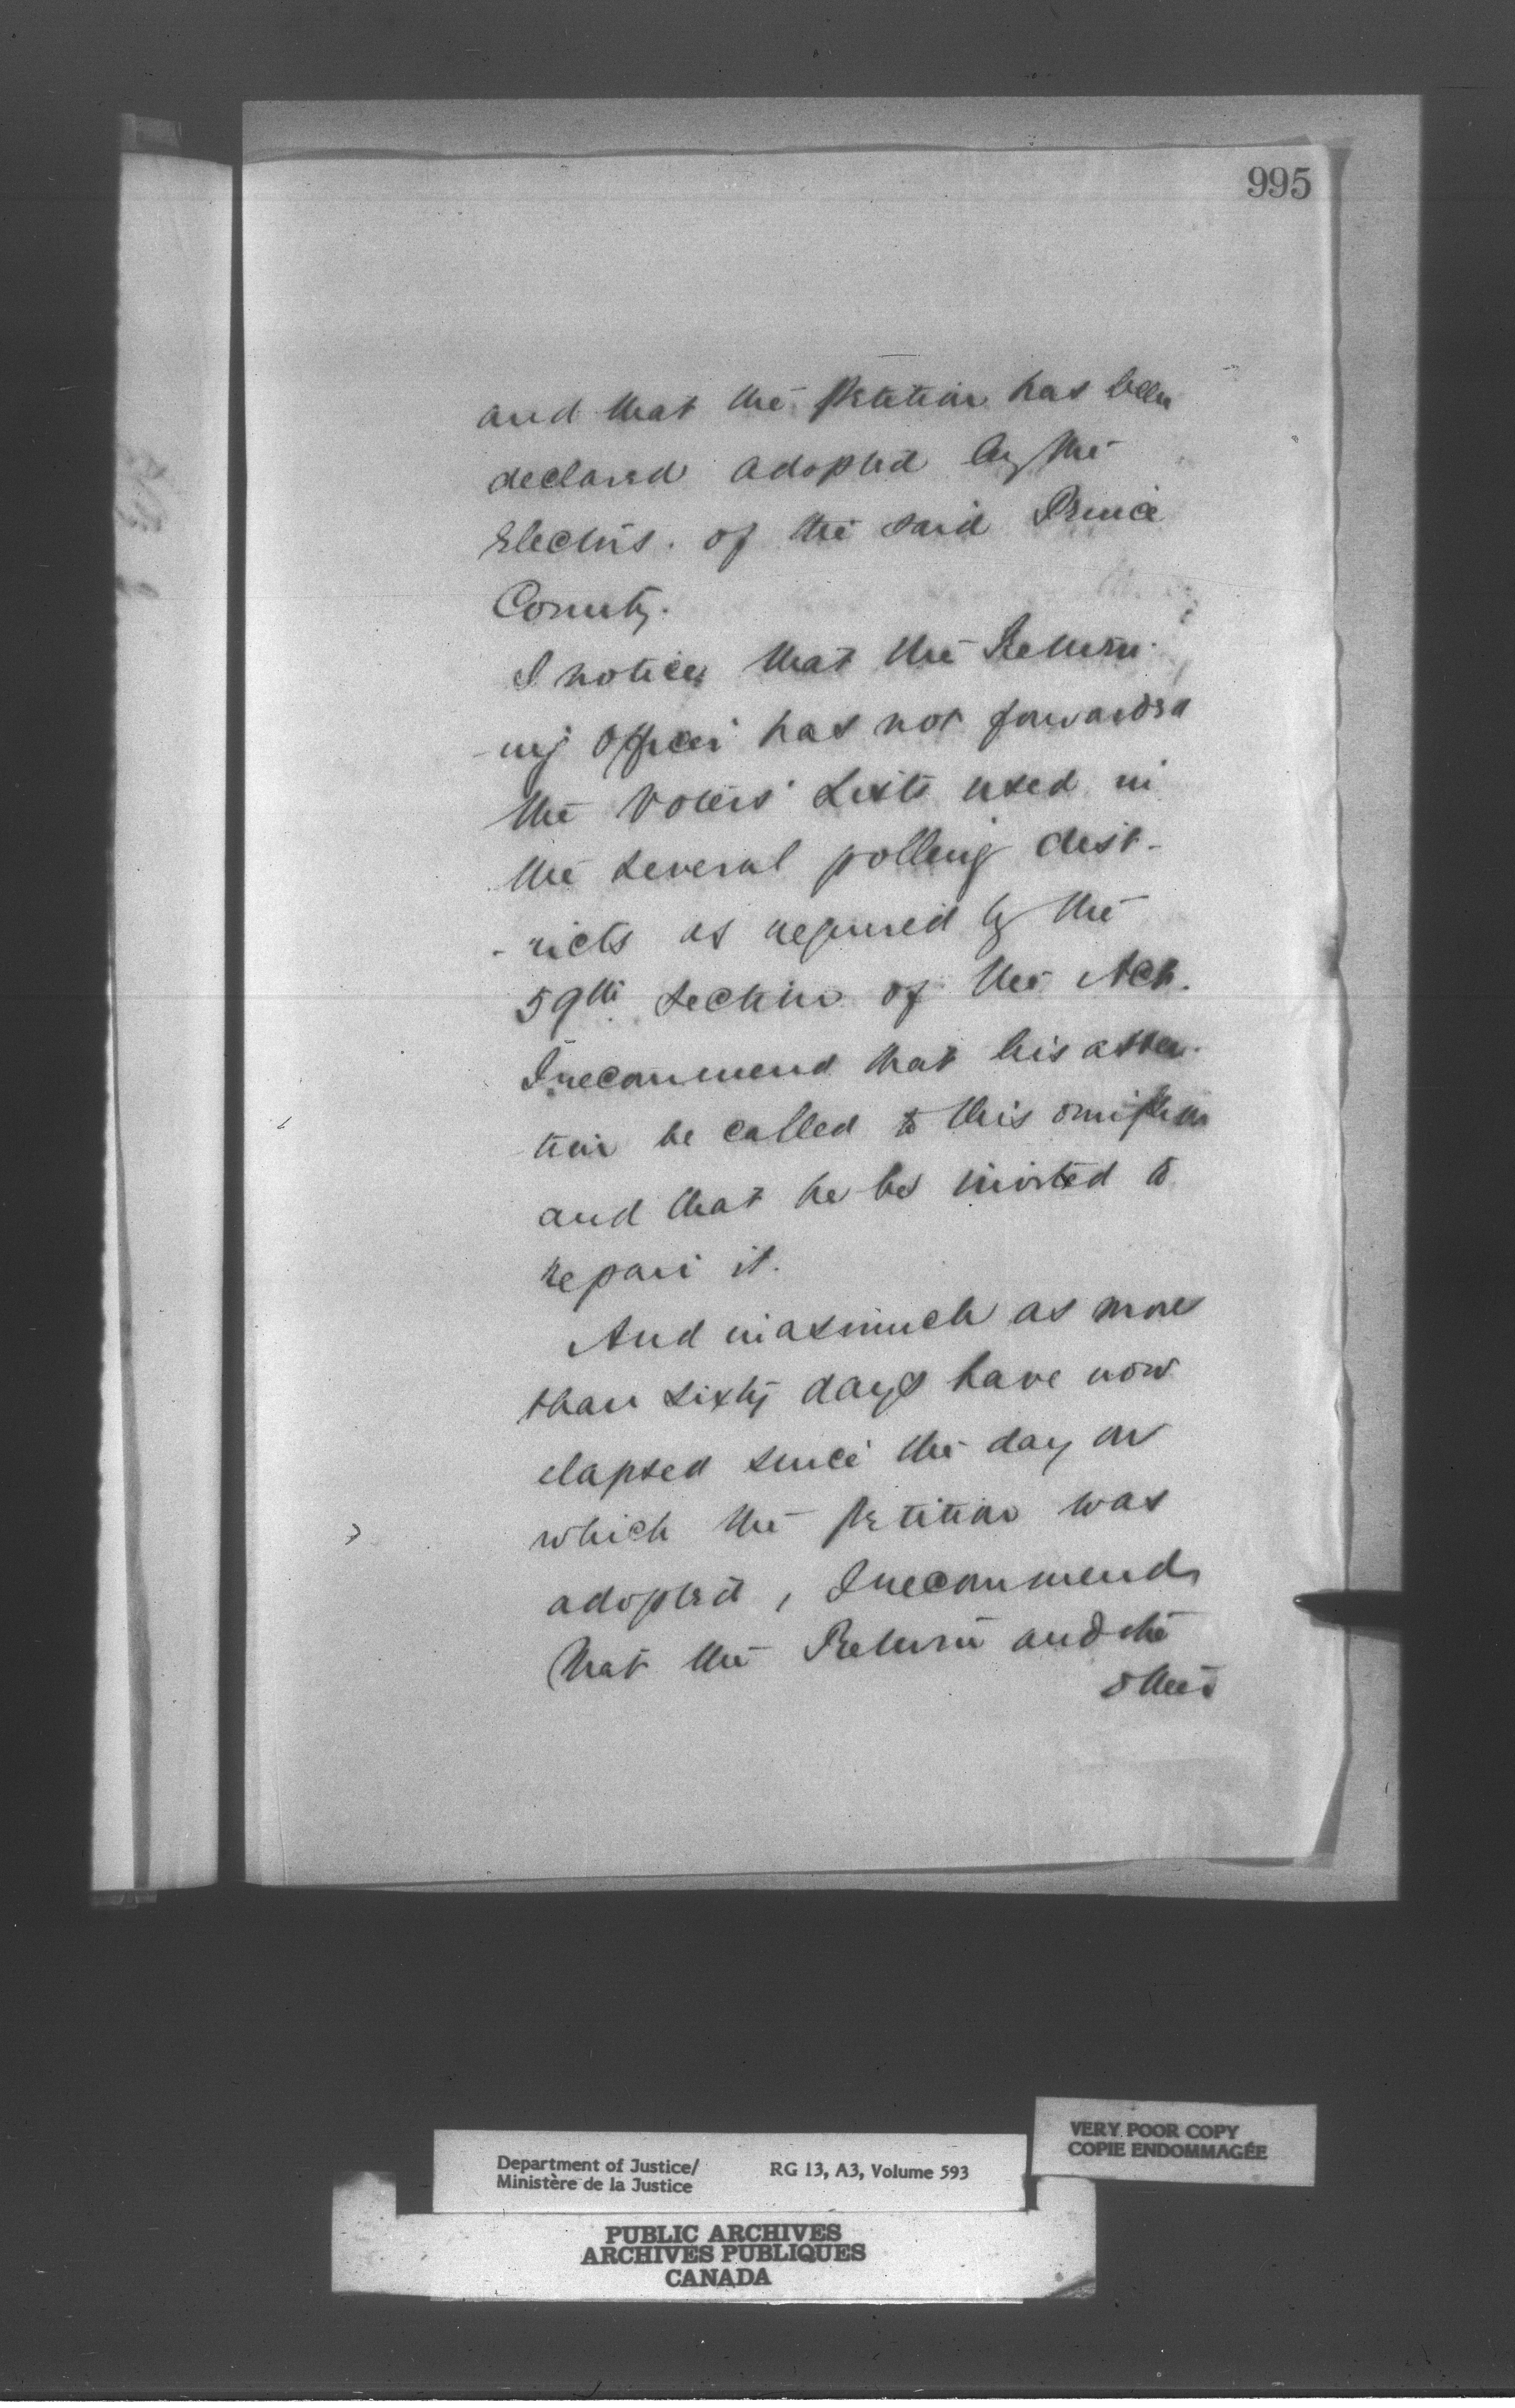 995
and that the Petition has been
declared adopted by the
Electors. of the said Prince
County.
I notice that the Return-
-ing Officer has not forwarded
the Voters' Lists used in
the several polling dist-
-ricts as required by the
59th Section of the Act.
I recommend that his atten-
tion be called to this omission
and that he be invited to
repair it.
And inasmuch as more
than sixty days have now
elapsed since the day on
which the Petition was
adopted, I recommend
that the Return and the
other
VERY POOR COPY
COPIE ENDOMMAGÉE
Department of Justice/ RG 13, A3, Volume 593
Ministère de la Justice
PUBLIC ARCHIVES
ARCHIVES PUBLIQUES
CANADA